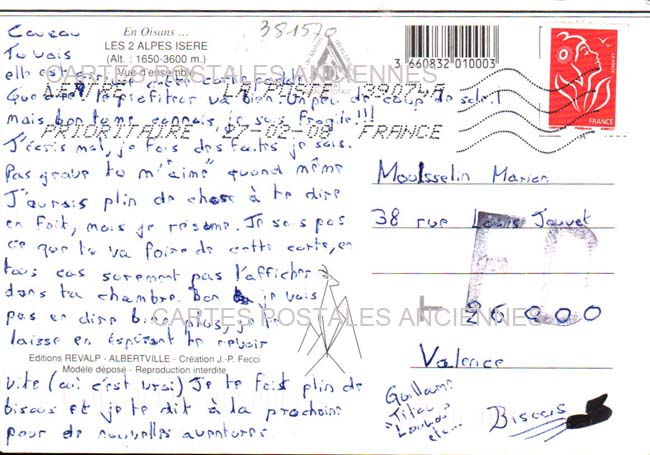 Coucou
En Oisans ...
LES 2 ALPES ISERE
(Alt. : 1650-3600 m.)
Vue d'ensemble
381570
3 660832 010003
CARTES POSTALES ANCIENNES
LETTRE LA POSTE 39074A
PRIORITAIRE 27-02-08 FRANCE
FRANCE
Tu vois
elle est cette carte
Que dire profiter va bien. Un peu de coup de soleil
mais bon tu me connais je suis fragile!!!
J'écris mal, je fais des fautes je sais.
Pas grave tu m'"aime" quand même
J'aurais plin de chose à te dire
en fait, mais je résume. Je sais pas
ce que tu va faire de cette carte, en
tous cas surement pas l'afficher
dans ta chambre. Bon je vais
pas en dire bien plus, je te
laisse en espérant te revoir
Editions REVALP - ALBERTVILLE - Création J.-P. Fecci
Modèle déposé - Reproduction interdite
vite (oui c'est vrai) Je te fait plin de
bisous et je te dit à la prochaine
pour de nouvelles aventures.
Moulsselin Marion
38 rue Louis Jouvet
26000
Valence
CARTES POSTALES ANCIENNES
Guillaume
"Titou"
"Loulou"
etc...
Biscous